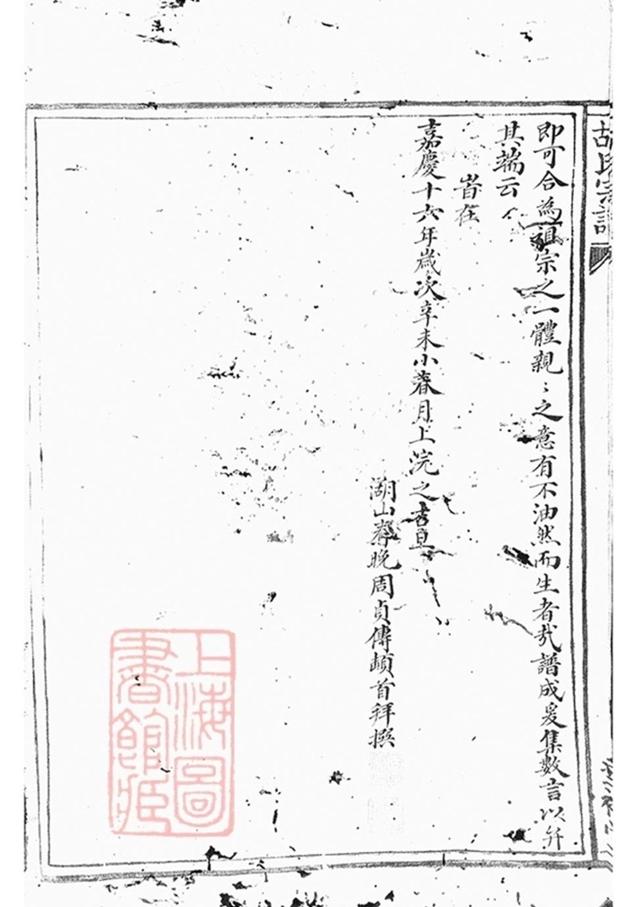 胡氏宗譜
即可合為祖宗之一體親〻之意有不油然而生者哉譜成爰集數言以弁
其端云〻
旹在
嘉慶十六年歲次辛未小春月上浣之吉旦
湖山眷晚周貞傳頓首拜撰
上海圖
書館藏